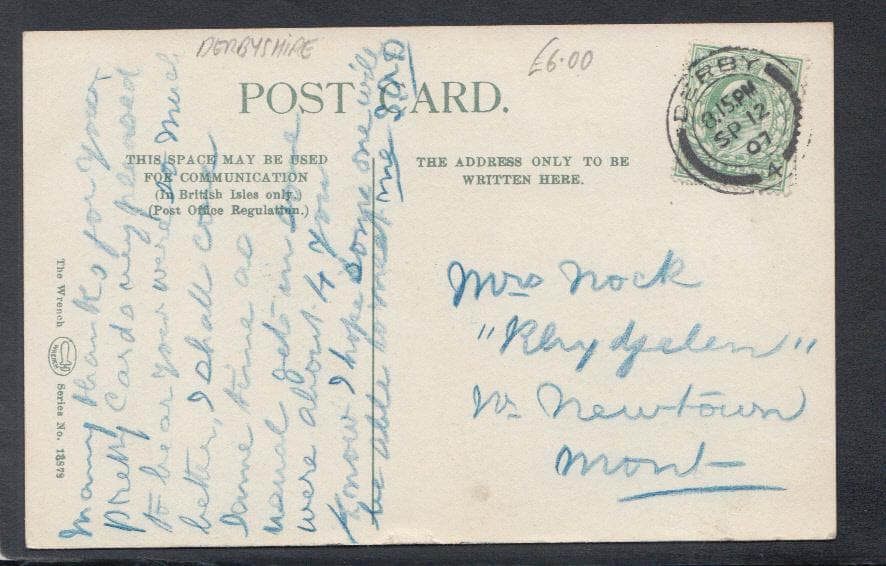 DERBYSHIRE
£6.00
POST CARD.
THIS SPACE MAY BE USED
FOR COMMUNICATION
(In British Isles only.)
(Post Office Regulation.)
THE ADDRESS ONLY TO BE
WRITTEN HERE.
DERBY
8.15 PM
SP 12
07
A
The Wrench
WRENCH
Series No. 13879
Many thanks for your
pretty Cards very pleased
to hear you were so much
better, I shall come
same time as
usual gets in
were about 4 You
Know I hope some one will
be able to meet me
Mrs Nock
"Rhydfelen"
Nr Newtown
Mont